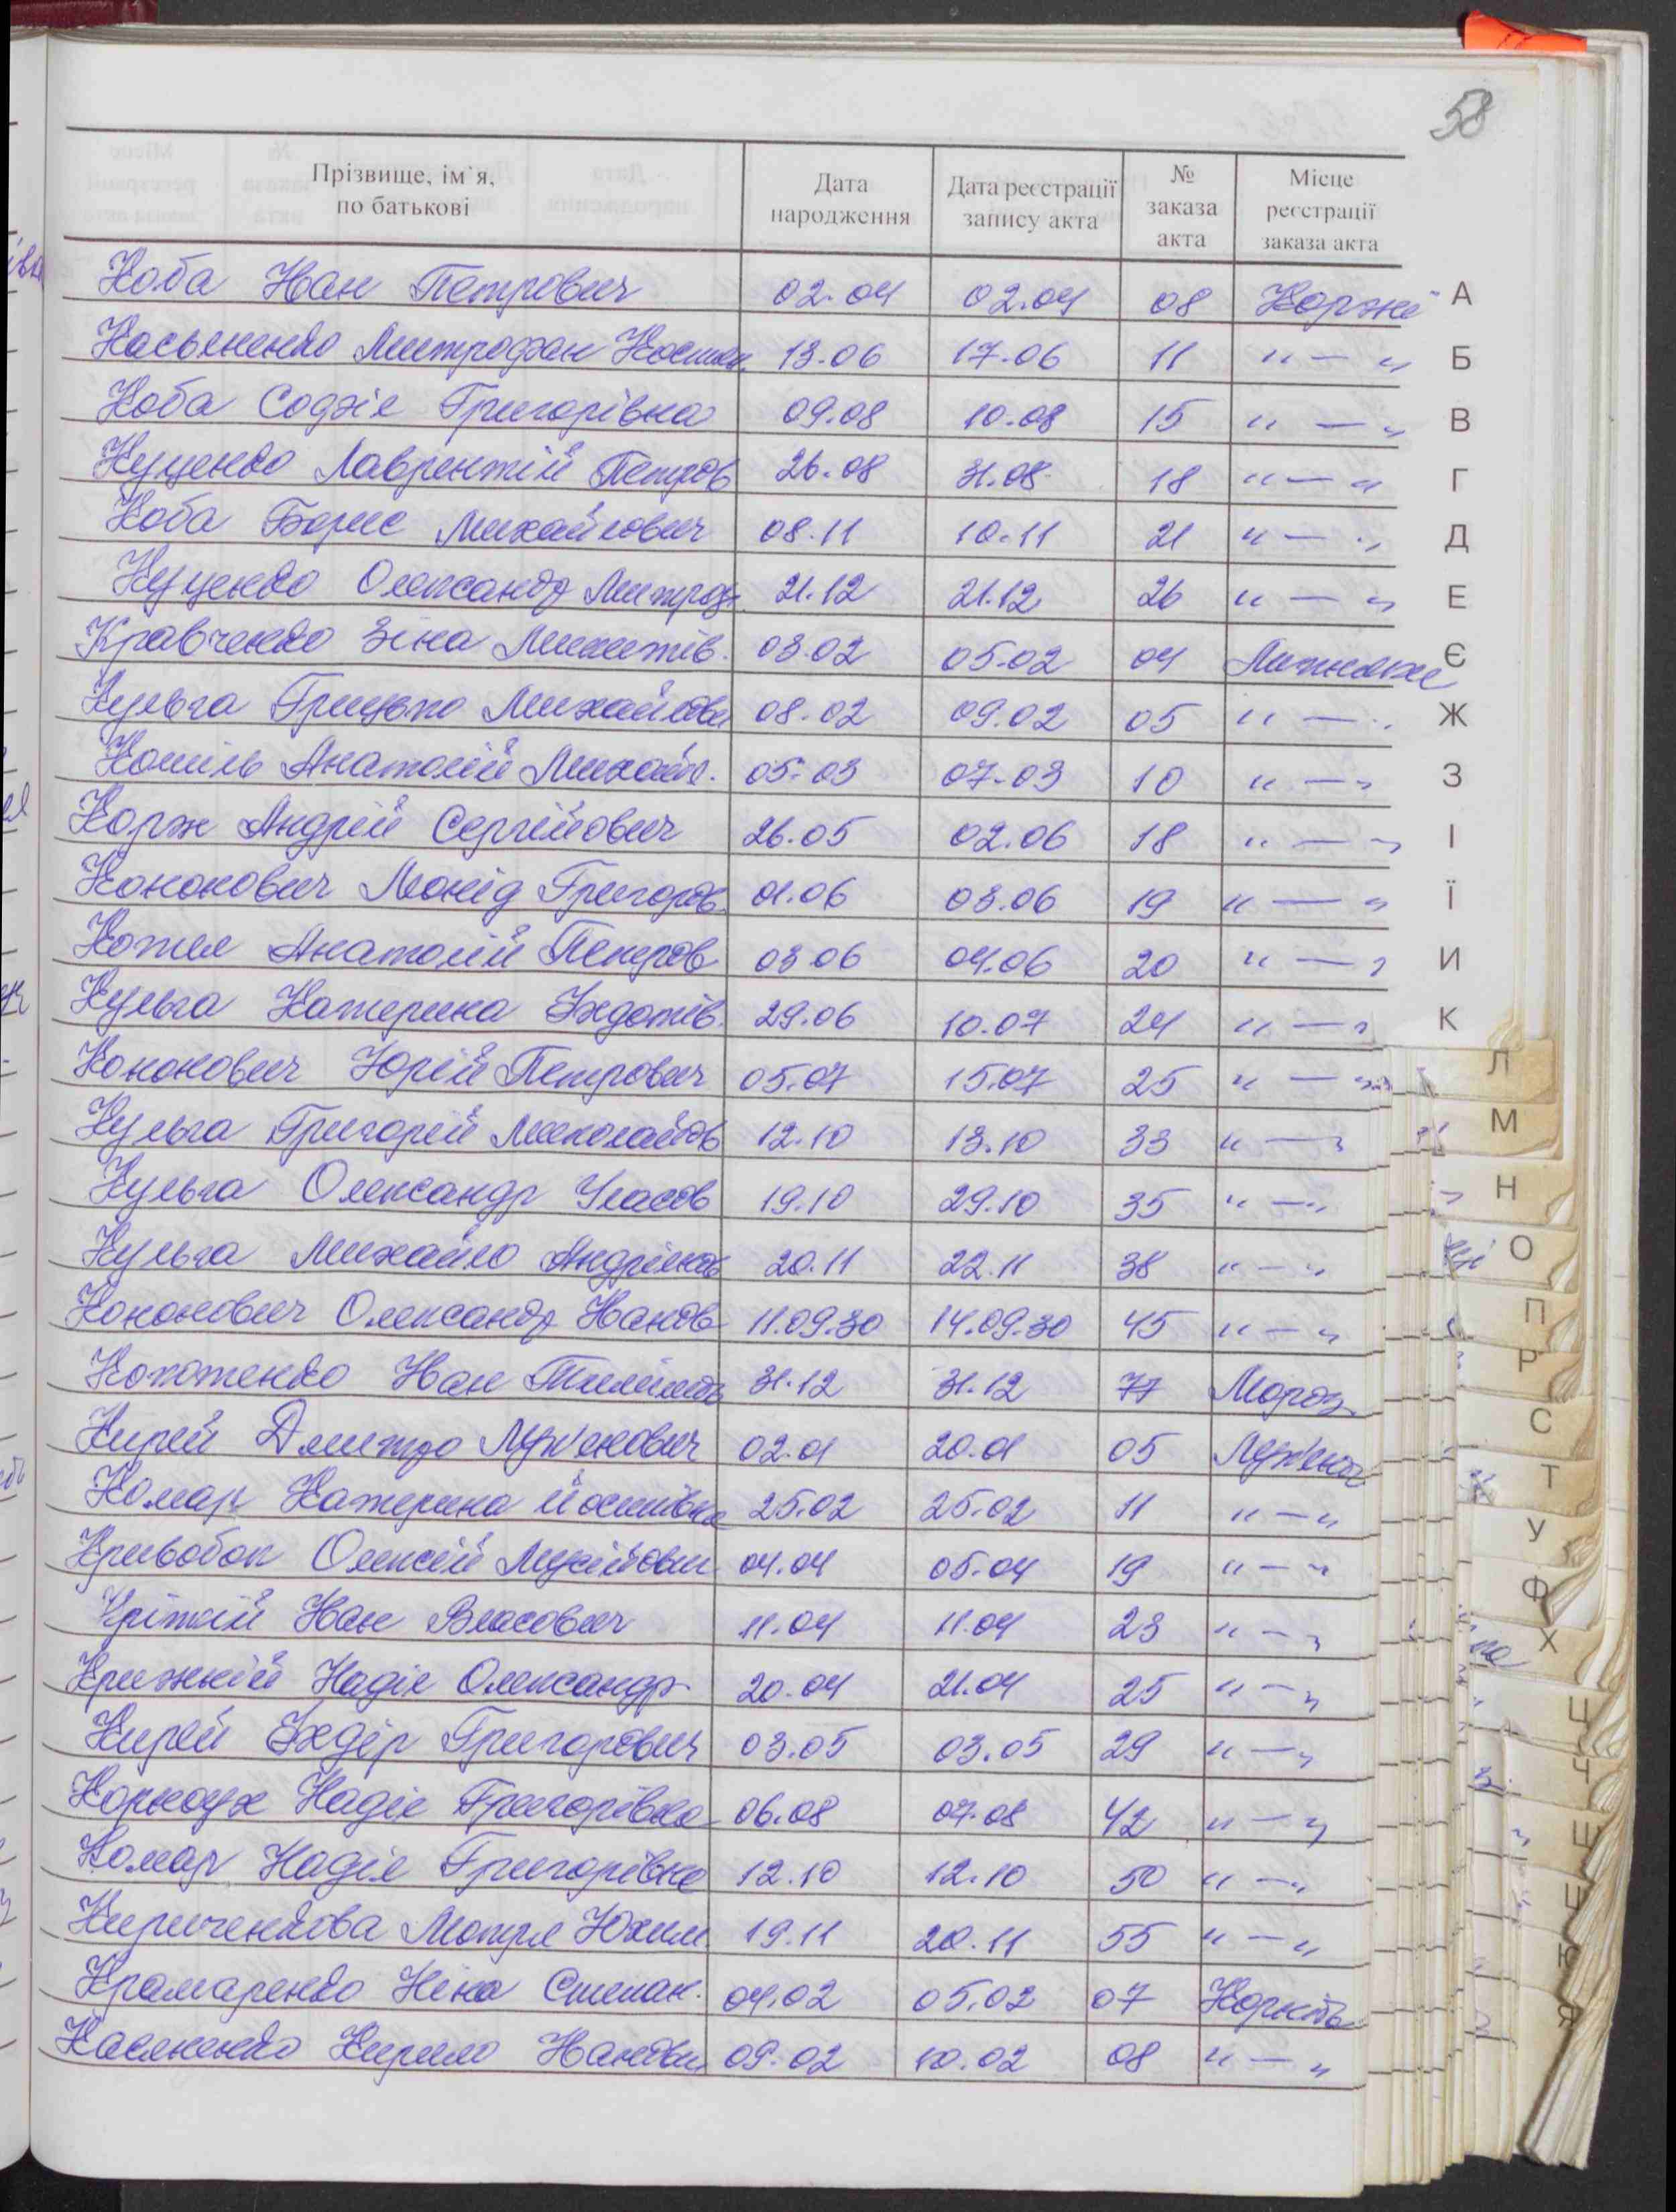 58
Прізвище, ім`я, по батькові | Дата народження | Дата реєстрації запису акта | № заказа акта | Місце реєстрації заказа акта
Коба Іван Петрович 02.04 02.04 08 Коржі
Касьяненко Митрофан Костян. 13.06 17.06 11 "—"
Коба Софія Григорівна 09.08 10.08 15 "—"
Куценко Лаврентій Петров 26.08 31.08 18 "—"
Коба Борис Михайлович 08.11 10.11 21 "—"
Куценко Олександр Митроф. 21.12 21.12 26 "—"
Кравченко Зіна Микитів. 03.02 05.02 04
Кульга Грицько Михайлов 08.02 09.02 05 "—"
Кошіль Анатолій Михайл. 05.03 07.03 10 "—"
Корж Андрій Сергійович 26.05 02.06 18 "—"
Кононович Леонід Григоров. 01.06 03.06 19 "—"
Анатолій Петров 03.06 04.06 20 "—"
Кульга Катерина Федотів. 29.06 10.07 24 "—"
Кононович Юрій Петрович 05.07 15.07 25 "—"
Кульга Григорій Миколайов 12.10 13.10 33 "—"
Кульга Олександр Уласов 19.10 29.10 35 "—"
Кульга Михайло Андрійов 20.11 22.11 38 "—"
Кононович Олександр Іванов 11.09.30 14.09.30 45 "—"
Іван 31.12 31.12 77 Мороз.
Кирей Дмитро Лук'янович 02.01 20.01 05 Лук'ян
Комар Катерина Йосипівна 25.02 25.02 11 "—"
Кривобок Олексій Мусійович 04.04 05.04 19 "—"
Іван Власович 11.04 11.04 23 "—"
Надія Олександр. 20.04 21.04 25 "—"
Кирей Федір Григорович 03.05 03.05 29 "—"
Корноух Надія Григорівна 06.08 07.08 42 "—"
Комар Надія Григорівна 12.10 12.10 50 "—"
Кириченкова Мотря Юхим. 19.11 20.11 55 "—"
Крамаренко Ніна Степан. 04.02 05.02 07
Касяненко Кирило Іванович 09.02 10.02 08 "—"
А
Б
В
Г
Д
Е
Є
Ж
З
І
Ї
И
К
Л
М
Н
О
П
Р
С
Т
У
Ф
Х
Ц
Ч
Ш
Щ
Ю
Я